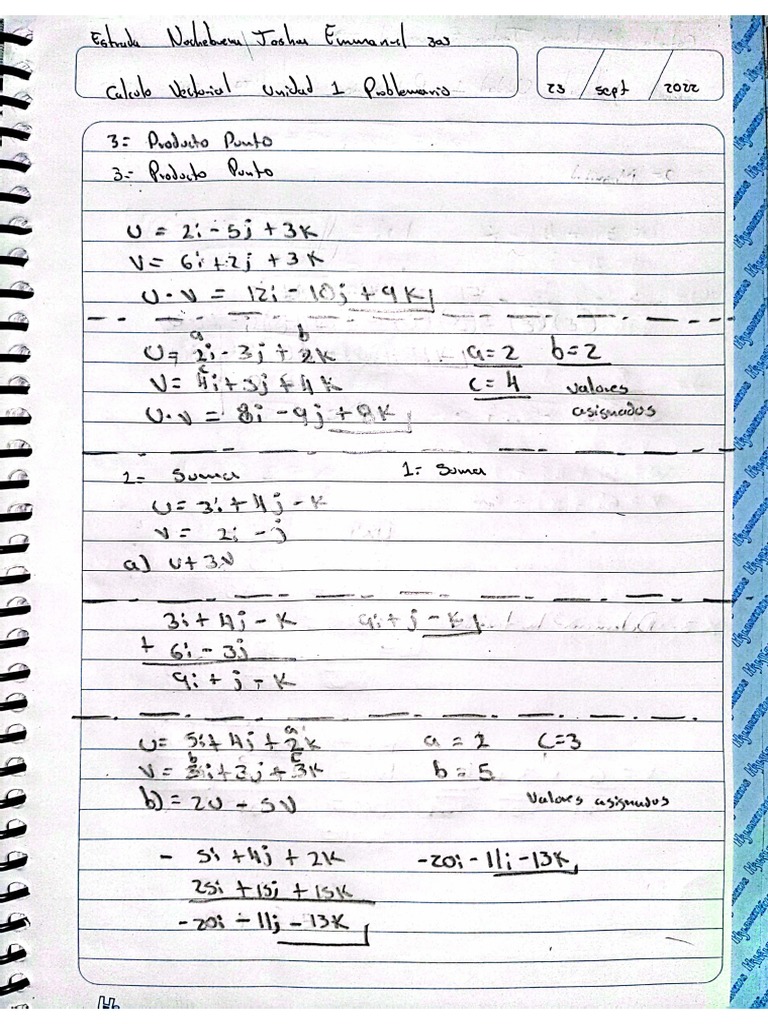 Estrada Nochebuena Joshua Emmanuel 303
Calculo Vectorial Unidad 1 Problemario
23 / sept / 2022
3= Producto Punto
3= Producto Punto
U = 2i - 5j + 3K
V = 6i + 2j + 3K
U·V = 12i - 10j + 9K
a b
U= 2i - 3j + 2K a=2 b=2
c
V= 4i + 3j + 4K c=4 valores
U·V = 8i - 9j + 8K asignados
2= Suma 1= Suma
U= 3i + 4j - K
V= 2i - j
a) U + 3V
3i + 4j - K 9i + j - K
+ 6i - 3j
9i + j - K
a
U= 5i + 4j + 2K a = 2 C=3
b c
V= i + 3j + 3K b = 5
b) = 2U - 5V Valores asignados
- 5i + 4j + 2K -20i - 11j - 13K
25i + 15j + 15K
-20i - 11j - 13K